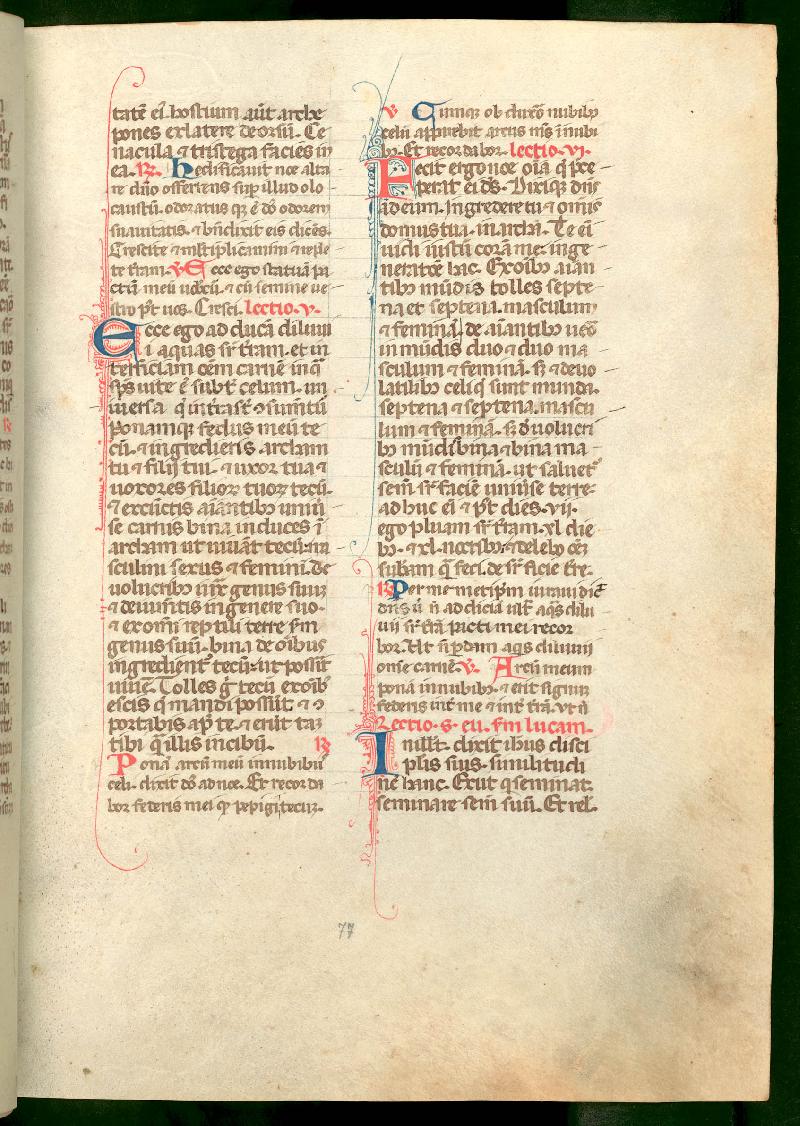 tatē ei. hostium aūt arche
pones ex latere deorsū. Ce
nacula ⁊ tristega facies in
ea. R. hedificauit noe alta
re dn̄o offerens sup illud olo
caustū. odoratus qꝫ ē dō odorem
suauitatis. ⁊ bn̄dixit eis dicēs.
Crescite ⁊ multiplicamini ⁊ reple
te t̄ram. V. Ecce ego statuā pa
ctū meū uobcū. ⁊ cū semine ue
stro p̄t uos. Cresci. lectio. v.
Ecce ego adducā diluuii
aquas sr̄ t̄ram. et in
terficiam oēm carnē in q̄
sp̄s uite ē subt̄ celum. un
uersa q̄ in t̄ra st̄ ɔsumētū
Ponamqꝫ fedus meū te
cū. ⁊ ingredieris archam
tu ⁊ filij tui. ⁊ uxor tua ⁊
uxores filioꝝ tuoꝝ tecū.
⁊ ex cūctis aiāntibꝫ uniū
se carnis bina induces ī
archam ut uiuāt tecū. ma
sculini sexus ⁊ feminī. De
uolucribꝫ iux̄ genus suū
⁊ de iumētis in genere suo.
⁊ ex om̄i reptili terre sm̄
genus suū. bina de oībus
ingrediēnt̄ tecū. ut possit
uiuē. Tolles ḡ tecū ex oībꝫ
escis q̄ mandi possūt. ⁊ ɔ
portabis ap̄ te. ⁊ erūt taꝫ
tibi q̄ illis in cibū. R
Ponā arcū meū in nubibꝫ
celi. dixit dō ad noe. Et recorda
bor federis mei qꝫ pepigi tecū.
V. Cumqꝫ obduxero nubibꝫ
celū apparebit arcus ms̄ ī nubi
bꝫ. Et recordabor. lectio. vi.
Fecit ergo noe oīa q̄ p̄ce
perat ei ds̄. Dixitqꝫ dn̄s
ad eum. Ingredere tu ⁊ omīs
domus tua. in archā. Te ei
uidi iustū corā me. in ge
neratōe hac. Ex oībꝫ aian
tibꝫ mūdis tolles septe
na et septena. masculum
⁊ feminā. de aiantibꝫ uēo
in mūdis duo ⁊ duo ma
sculum ⁊ feminā. sꝫ ⁊ de uo
latilibꝫ celi q̄ sunt munda.
septena ⁊ septena. mascu
lum ⁊ feminā. sꝫ d̄ uolucri
bꝫ mūdis bina ⁊ bina ma
sculū ⁊ feminā. ut saluet̄
sem̄. sr̄ faciē uniūse terre.
adhuc ei ⁊ p̄t dies. vii.
ego pluam sr̄ t̄ram. xl die
bꝫ. ⁊ xl. noctibꝫ. ⁊ delebo oēꝫ
subam q̄ feci. de sr̄ facie t̄re.
R Per memetip̄m iuraui dic̄
dn̄s n̄ adiciā ult̄ aq̄s dilu
uii sr̄ t̄rā pacti mei recor
bor. Ut n̄ p̄dam aqis diluuii
om̄e carnē. V. Arcū meum
ponā in nubibꝫ. ⁊ erit signū
federis int̄ me ⁊ int̄ t̄rā. Ut n̄
Lectio. s. eu. sm̄ lucam.
In ill t̄. dixit ihus disci
pl'is suis. similitudi
nē hanc. Exiit q̄ seminat.
seminare sem̄ suū. Et rel.
77